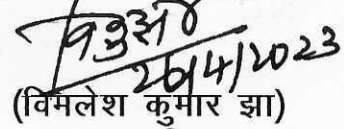 26/4/2023
(विमलेश कुमार झा)